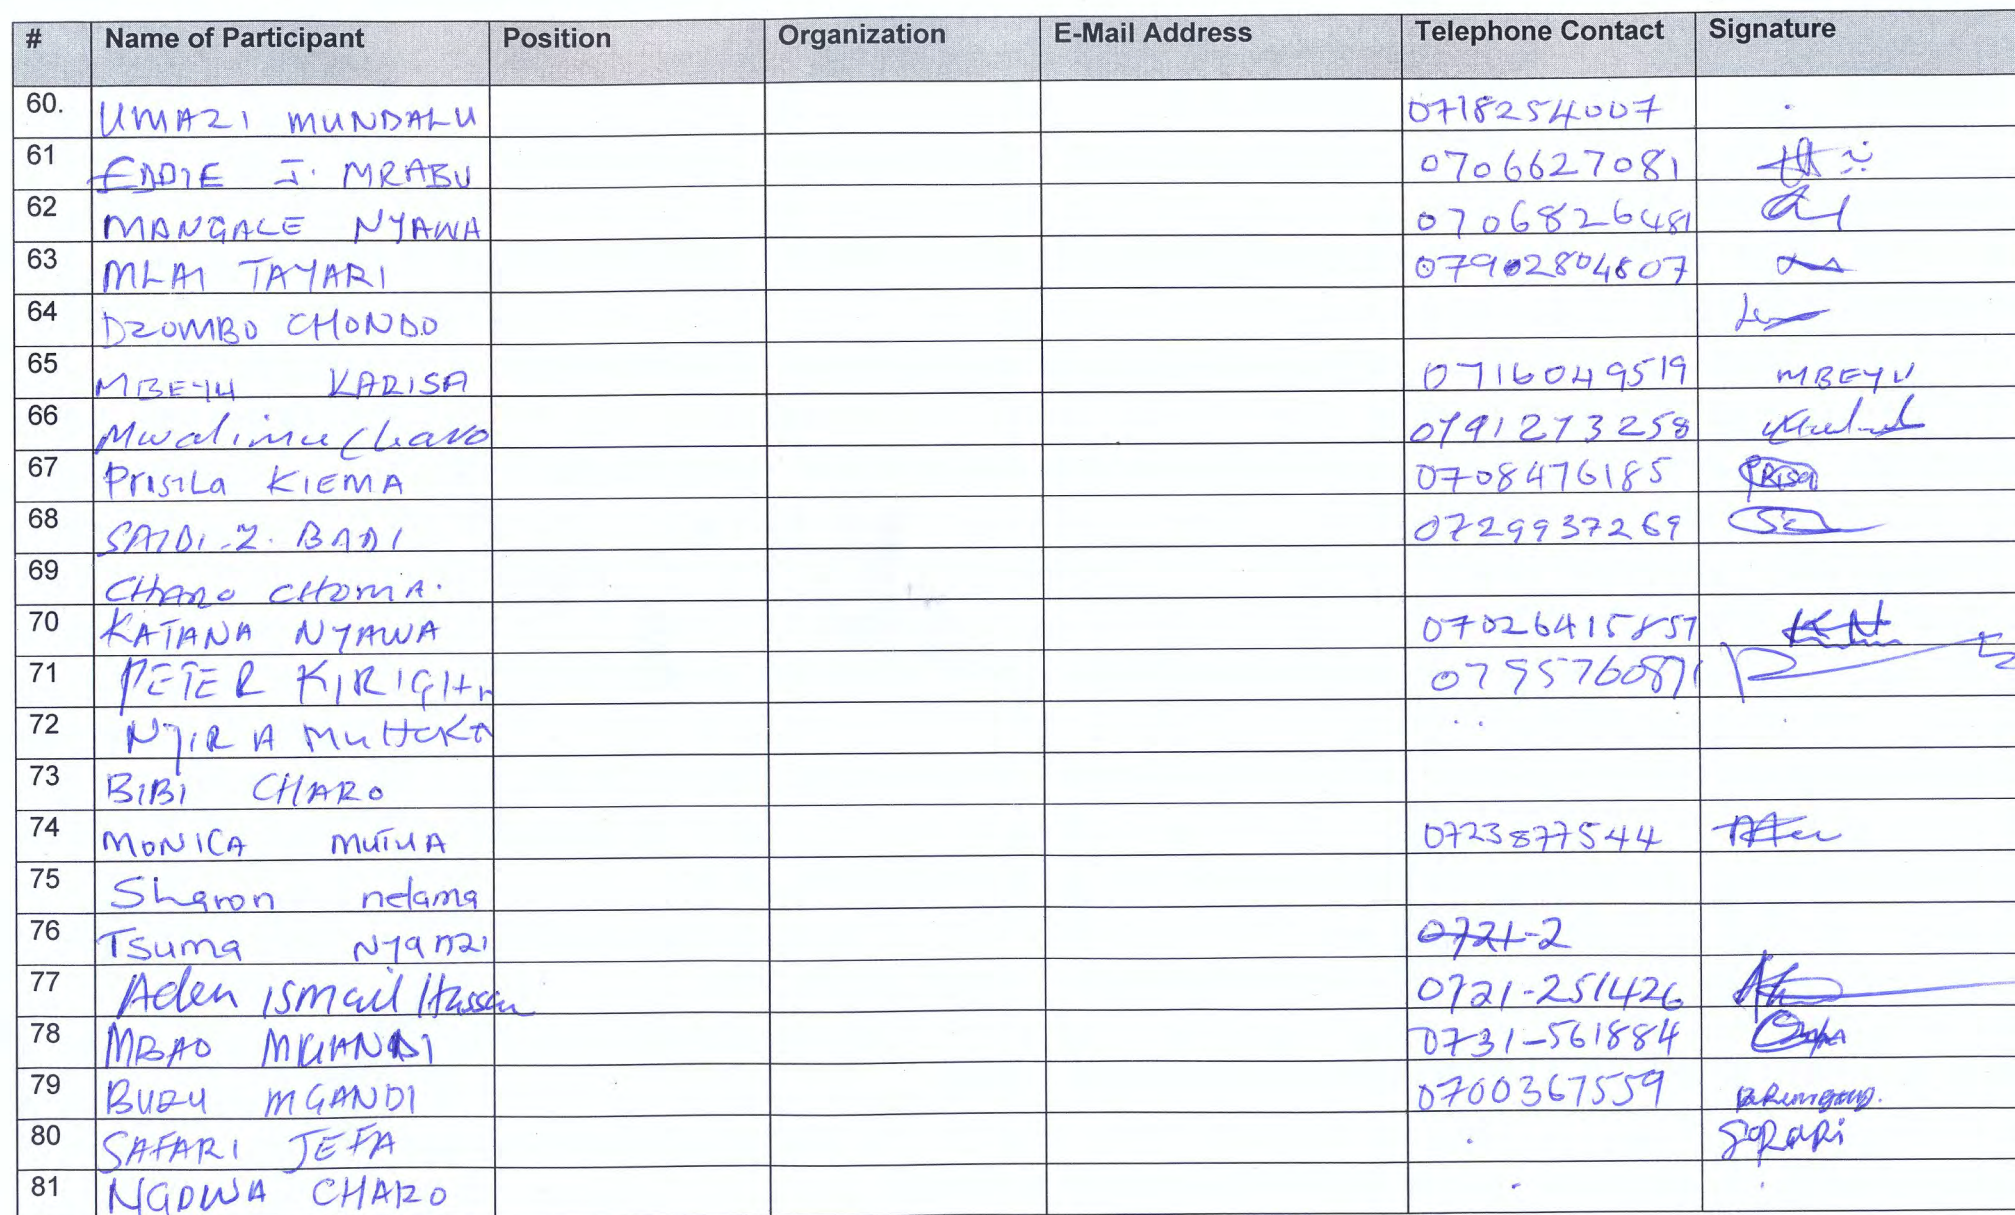 # Name of Participant Position Organization E-Mail Address Telephone Contact Signature
60. UMAZI MUNDALU 0718254007
61 EDDIE J. MRABU 0706627081
62 MANGALE NYAWA 0706826481
63 MLAI TAYARI 07902804807
64 DZOMBO CHONDO
65 MBEYU KARISA 0716049519 MBEYU
66 Mwalimu Charo 0791273258
67 Prisila KIEMA 0708476185
68 SAIDI .Z. BADI 0729937269
69 CHARO CHOMA.
70 KATANA NYAWA KN
71 PETER 0795760871
72 NJIRA
73 BIBI CHARO
74 MONICA MUTUA 0723877544
75 Sharon ndama
76 Tsuma Nyanzi 0721-2
77 Aden Ismail Hassan 0721-251426
78 MBAO 0731-561884
79 BUZU MGANDI 0700367559
80 SAFARI JEFA
81 NGOWA CHARO